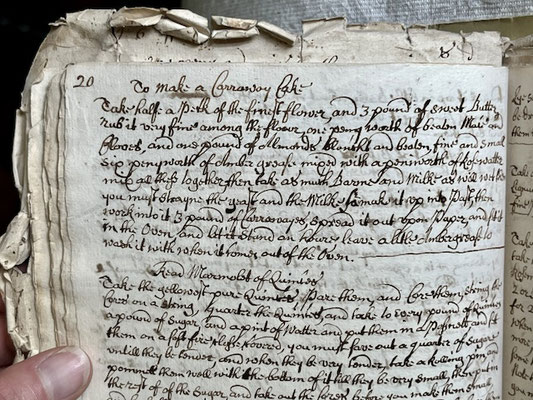 20
To make a Carraway Cake
Take halfe a Peck of the finest flower, and 3 pound of sweet Butter
rub it very fine among the flower, one peny worth of beaten Mace and
Cloves, and one pound of Almonds blanch't and beaten, fine and small
six penyworth of Amber grease mixed with a peniworth of Rosewatter
mix all thes together then take as much Barme and Milke as will wet
you must strayne the yeast and the Milke to make it up into Past, then
work into it 3 pound of Carrawayes, spread it out upon Paper, and set it
in the Oven, and let it stand an houre leave a little Ambergreass to
wash it with when it comes out of the Oven.
Read Marmolet of Quinces
Take the yellowest pure Quinces, Pare them, and Core them, string the
Cores on a string, quarter the Quinces, and take to every pound of Quinces
a pound of Sugar, and a pint of Watter and put them in a and set
them on a soft fire, close Covered, you must save out a quarter of Sugar
untill they be tender, and when they be very tender, take a rolling pin and
pommell them well with the bottom of it till they be very small then put in
the rest of of the Sugar, and take out the before you make them small